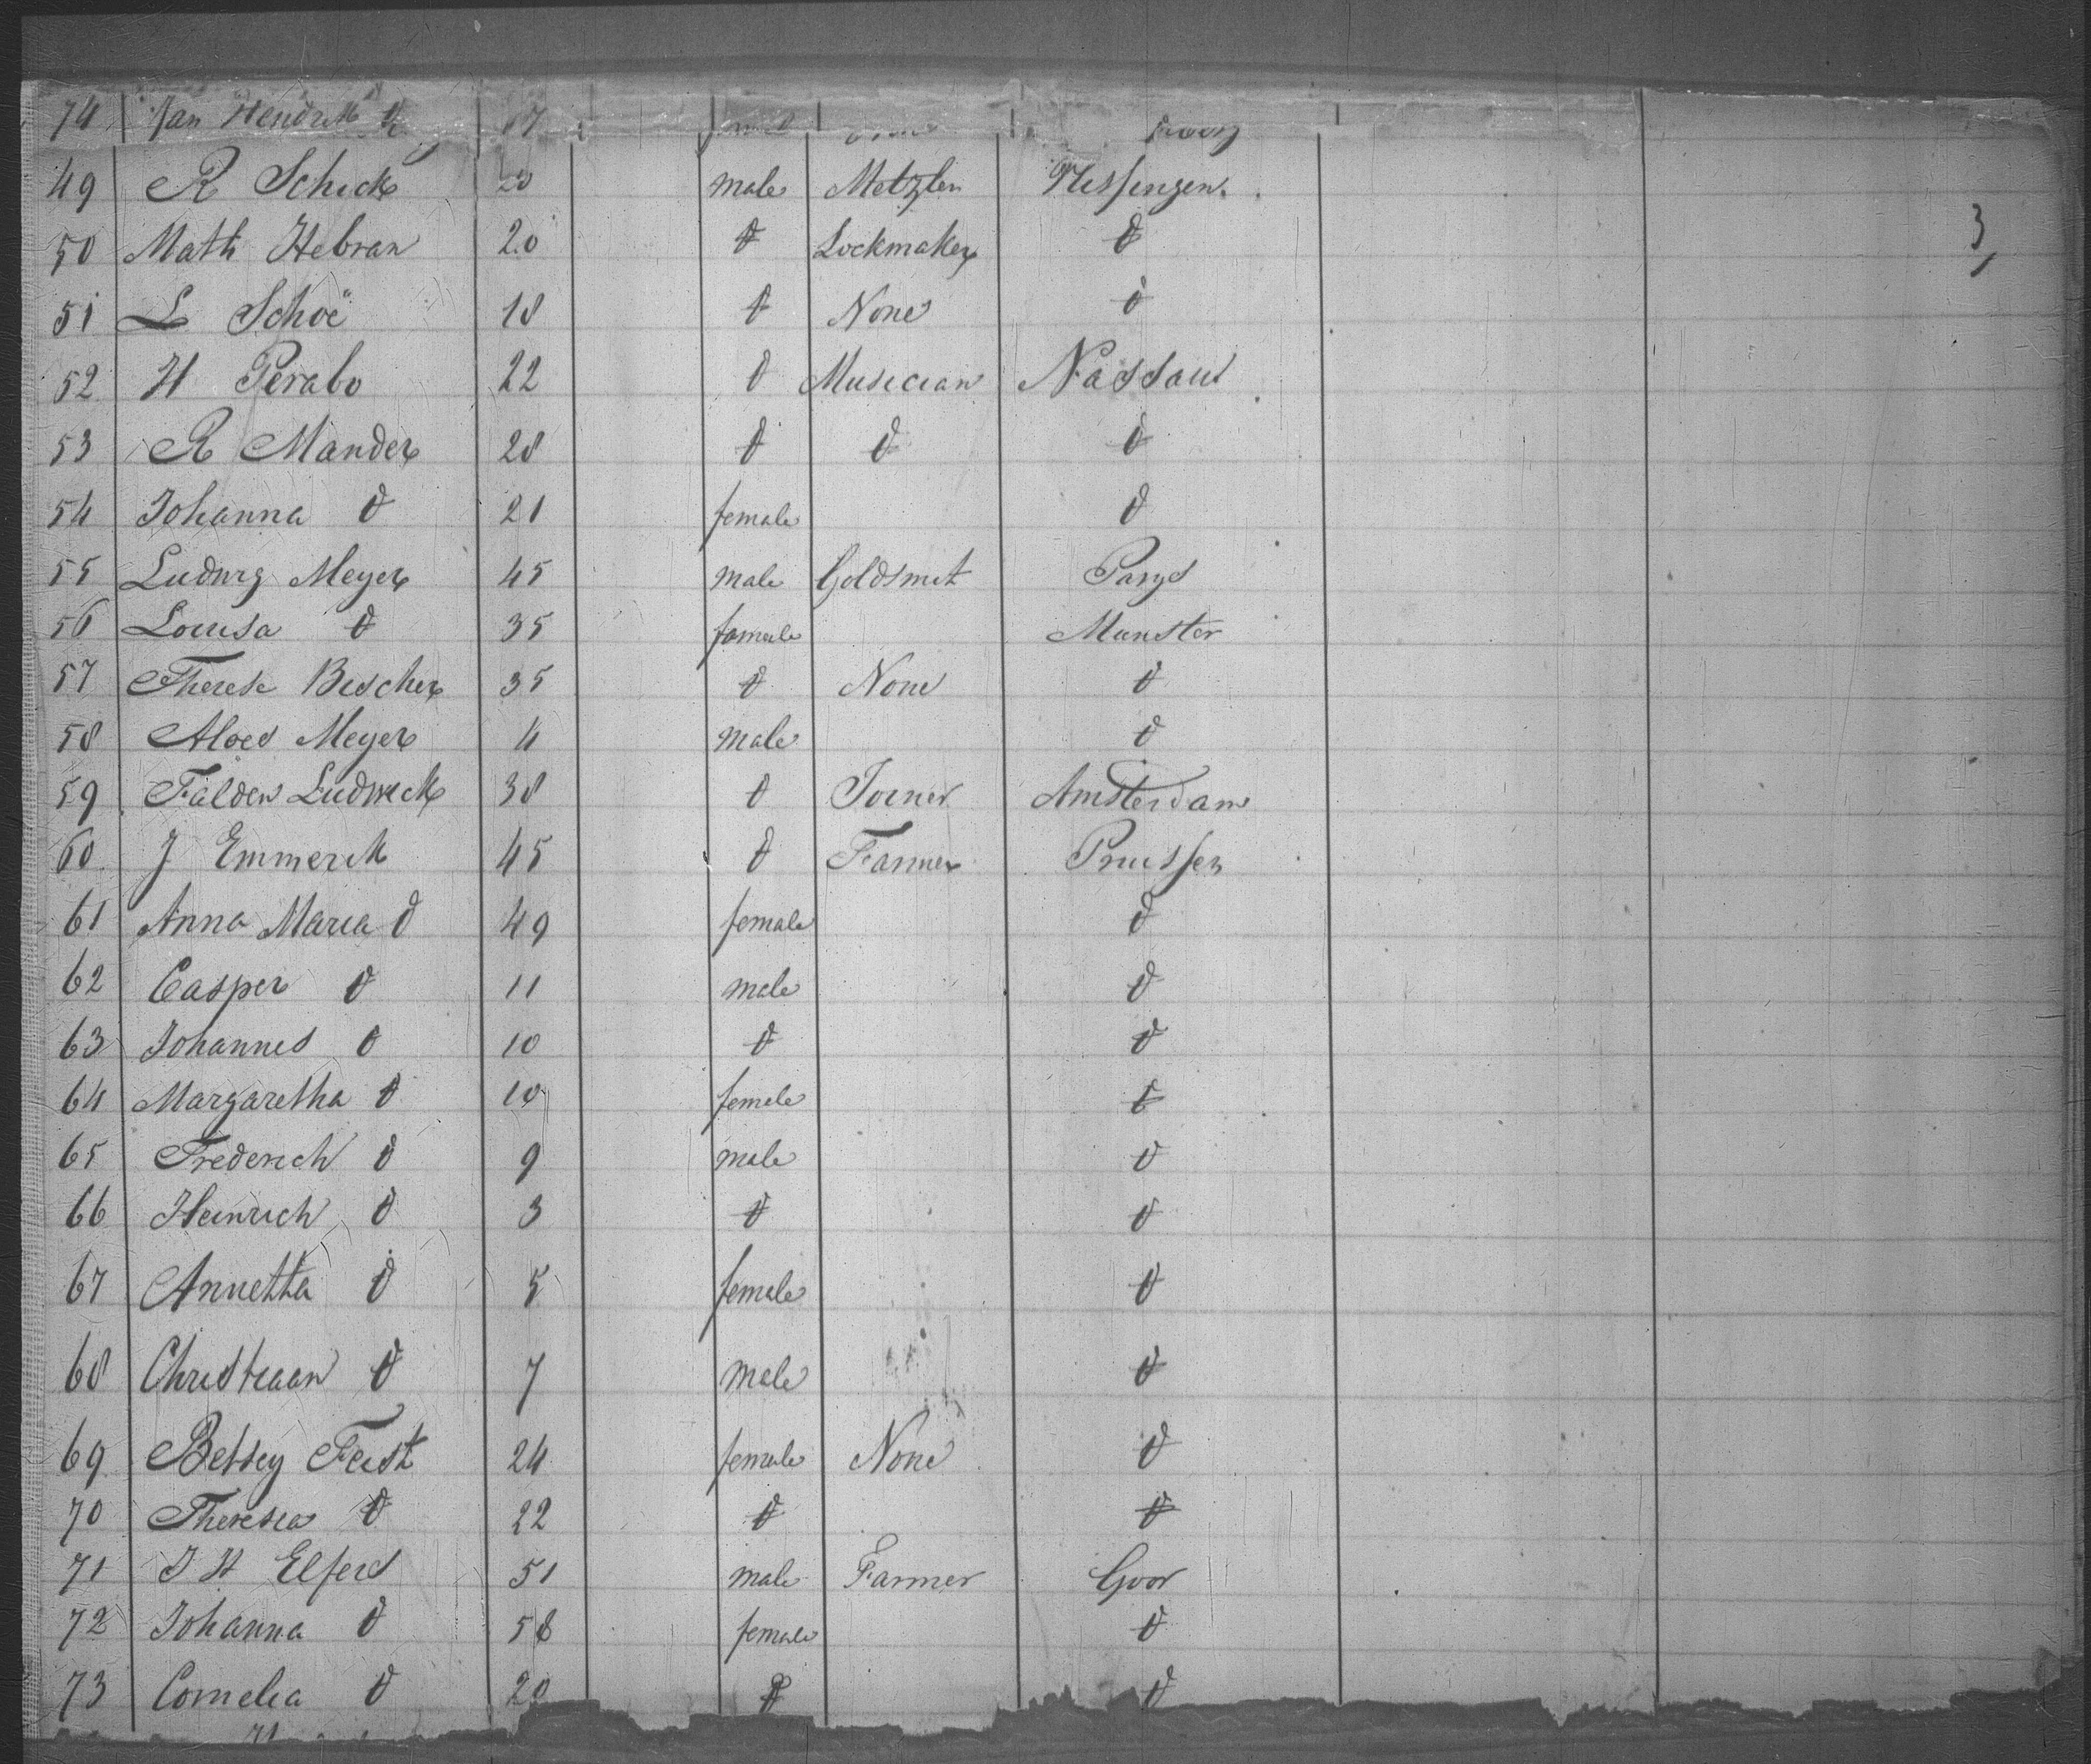 74 Jan Hendrik d 17
49 R Schick 20 male Metzler Hessingen.
50 Math Hebran 20 d Lockmaker d
3
51 L Schoë 18 d None d
52 H Perabo 22 d Musician Nassau
53 R Mander 28 d d d
54 Johanna d 21 female d
55 Ludwig Meyer 45 male Goldsmit Parys
56 Louisa d 35 female Munster
57 Therese Bischer 35 d None d
58 Aloes Meyer 4 male d
59 Falden Ludwick 38 d Joiner Amsterdam
60 J Emmerik 45 d Farmer Pruissen
61 Anna Maria d 49 female d
62 Casper d 11 male d
63 Johannes d 10 d d
64 Margaretha d 10 female d
65 Frederich d 9 male d
66 Heinrich d 3 d d
67 Annetta d 5 female d
68 Christiaan d 7 male d
69 Betsey Feist 24 female None d
70 Theresia d 22 d d
71 J H Elfers 51 male Farmer Goor
72 Johanna d 58 female d
73 Cornelia d 20 d d